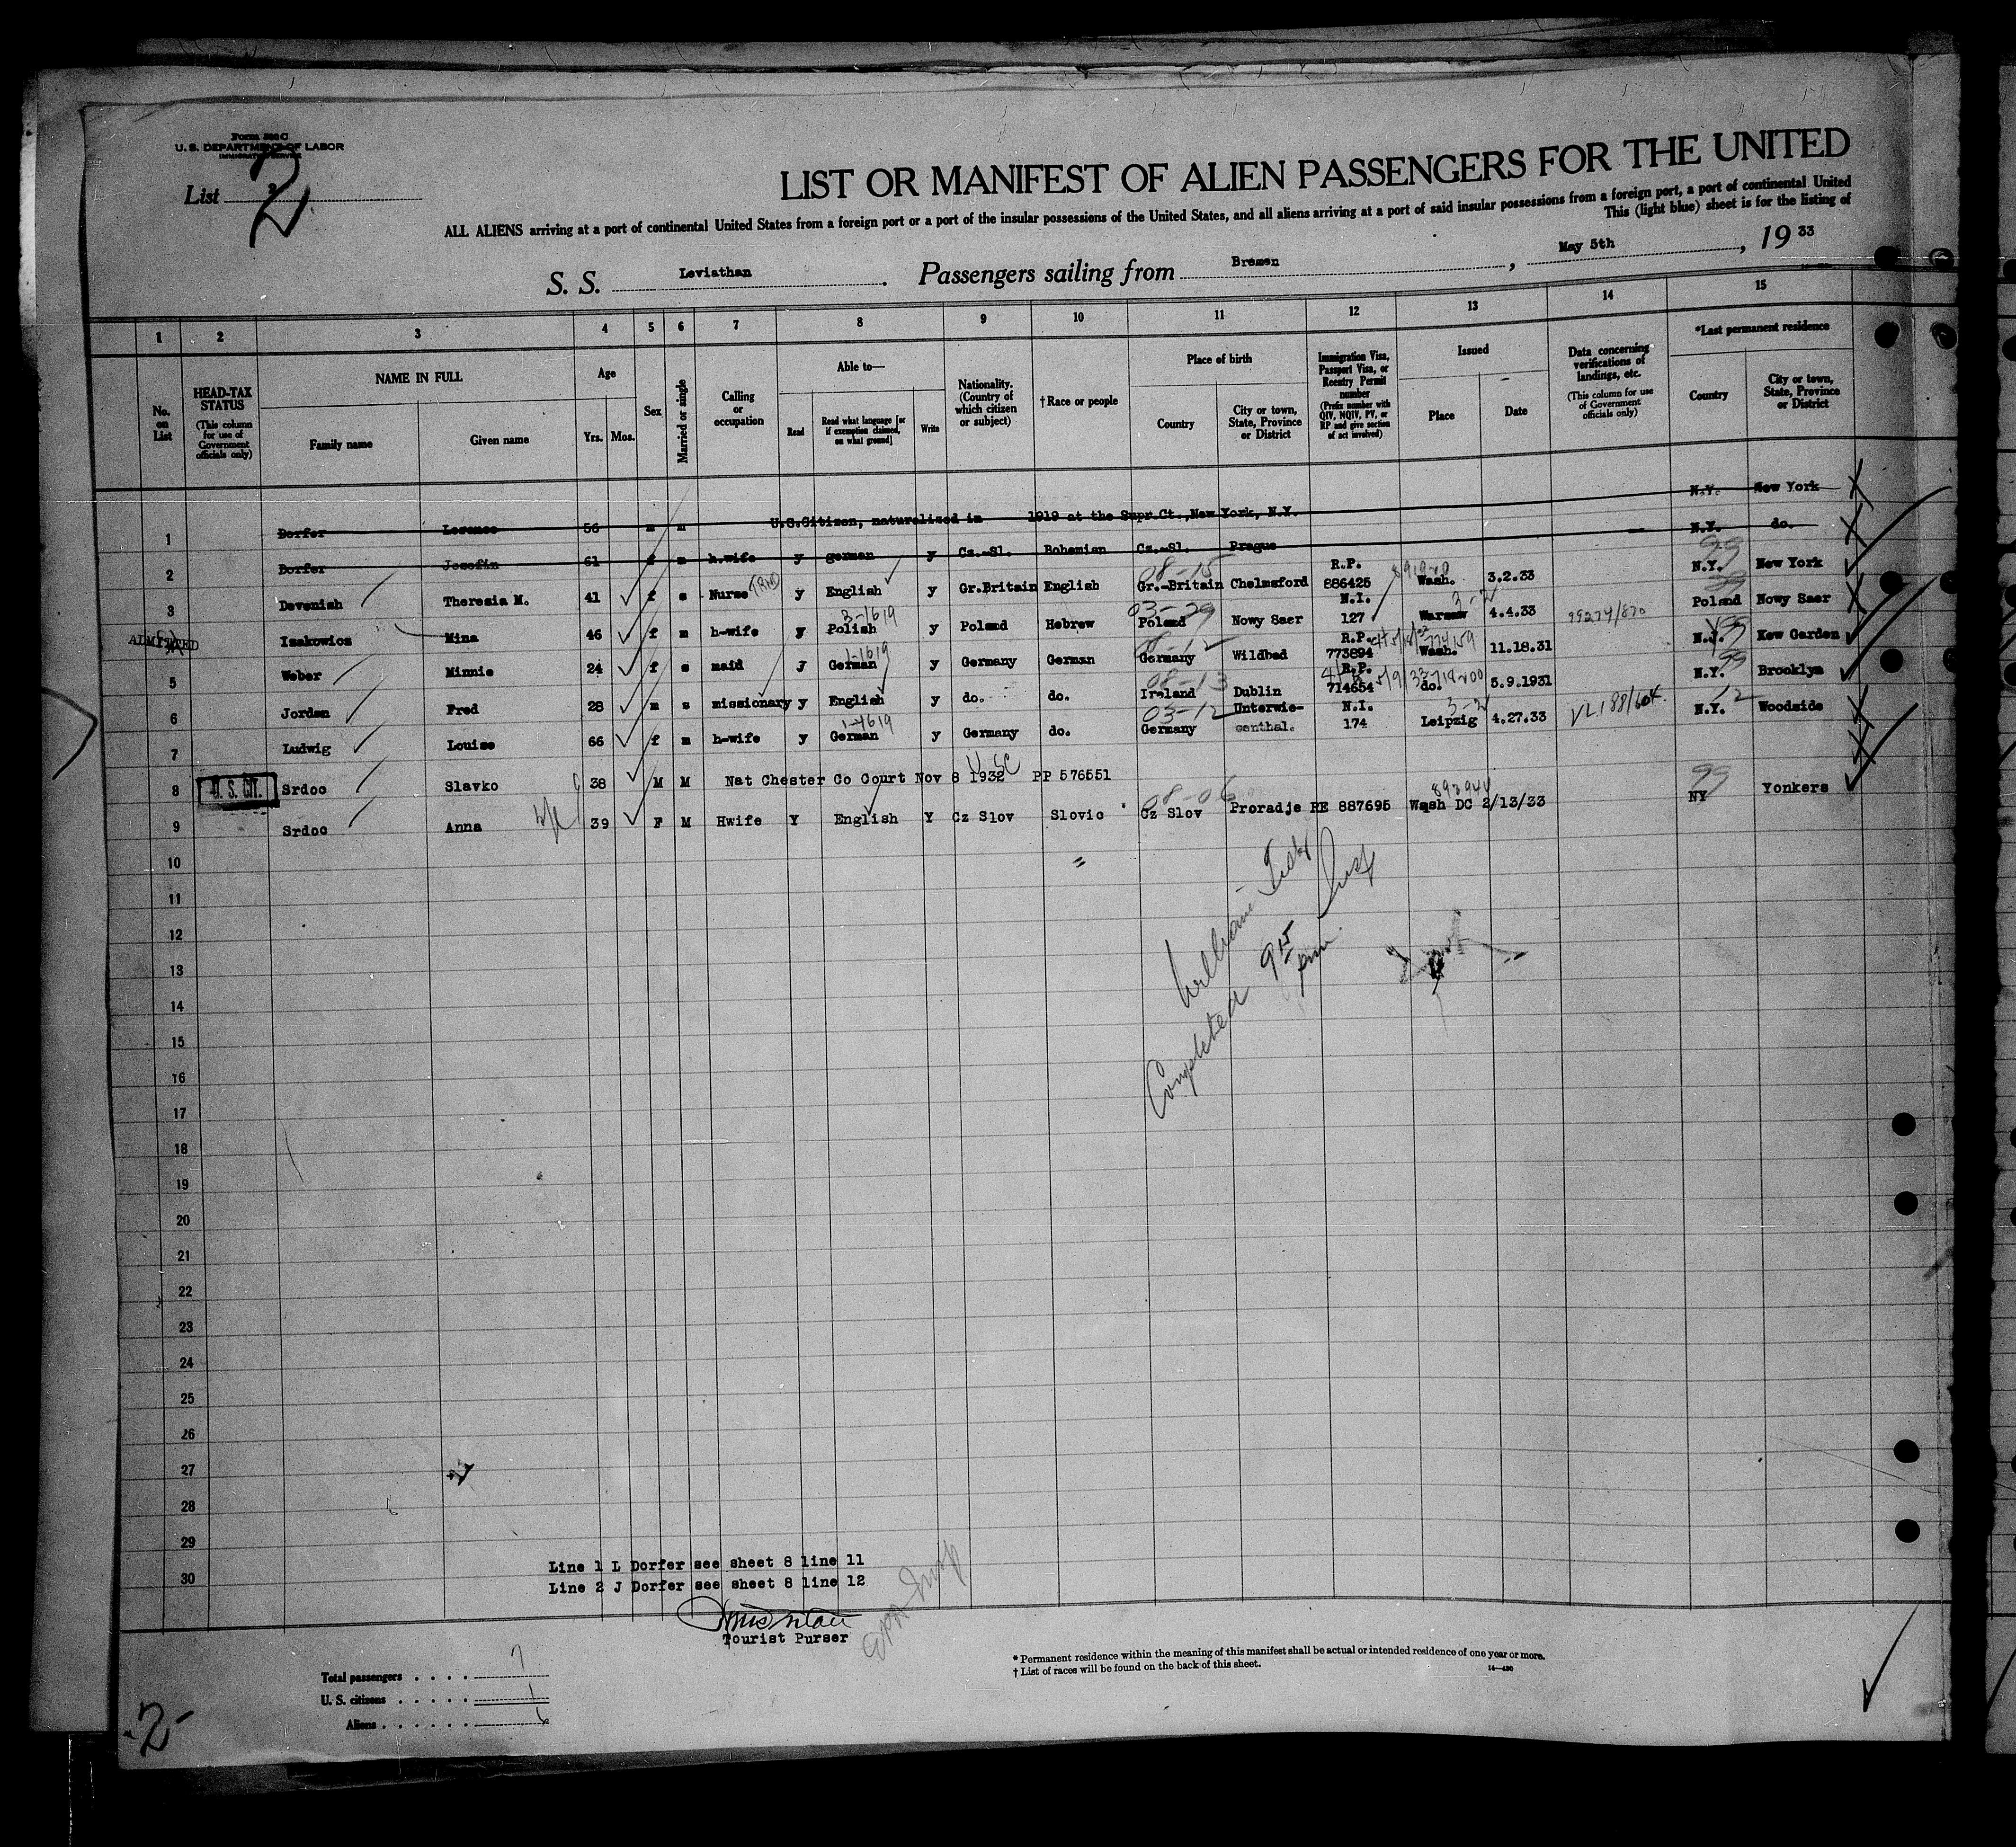 Form 500 C
U. S. DEPARTMENT OF LABOR
IMMIGRATION SERVICE
List 2
LIST OR MANIFEST OF ALIEN PASSENGERS FOR THE UNITED
ALL ALIENS arriving at a port of continental United States from a foreign port or a port of the insular possessions of the United States, and all aliens arriving at a port of said insular possessions from a foreign port, a port of continental United
This (light blue) sheet is for the listing of
S. S. Leviathan. Passengers sailing from Bremen, May 5th, 19 33
1 2 3 4 5 6 7 8 9 10 11 12 13 14 15
No. on List
HEAD-TAX STATUS (This column for use of Government officials only)
NAME IN FULL
Family name
Given name
Age
Yrs. Mos.
Sex
Married or single
Calling or occupation
Able to—
Read
Read what language [or if exemption claimed, on what ground]
Write
Nationality. (Country of which citizen or subject)
† Race or people
Place of birth
Country
City or town, State, Province or District
Immigration Visa, Passport Visa, or Reentry Permit number (Prefix number with QIV, NQIV, PV, or RP and give section of act involved)
Issued
Place
Date
Data concerning verifications of landings, etc. (This column for use of Government officials only)
*Last permanent residence
Country
City or town, State, Province or District
1 Dorfer Lorence 56 m m U.S.Citizen, naturalized in 1919 at the Supr.Ct., New York, N.Y. N.Y. New York
2 Dorfer Josefin 61 f m h.wife y german y Cz.-Sl. Bohemian Cz.-Sl. Prague N.Y. do.
3 Devenish Theresia M. 41 f s Nurse y English y Gr.Britain English 08-15 Gr.-Britain Chelmsford R.P. 886425 Wash. 3.2.33 99 N.Y. New York
ADMITTED Isakowicz Mina 46 f m h-wife y 3-1619 Polish y Poland Hebrew 03-29 Poland Nowy Saer N.I. 127 3-2 Warsaw 4.4.33 99274/870 Poland Nowy Saer
5 Weber Minnie 24 f s maid y 1-1619 German y Germany German 08-12 Germany Wildbad R.P. 773894 Wash. 11.18.31 N.Y. 99 Kew Garden
6 Jordan Fred 28 m s missionary y English y do. do. 08-13 Ireland Dublin R.P. 714654 do. 5.9.1931 99 N.Y. Brooklyn
7 Ludwig Louise 66 f m h-wife y 1-1619 German y Germany do. 03-12 Germany Unterwiesenthal. N.I. 174 3-2 Leipzig 4.27.33 VL 188/604 12 N.Y. Woodside
8 U. S. CIT. Srdoc Slavko 38 M M Nat Chester Co Court Nov 8 1932 USC PP 576551
9 Srdoc Anna 39 F M Hwife Y English Y Cz Slov Slovic 08-06 Cz Slov Proradje RE 887695 892944 Wash DC 2/13/33 99 NY Yonkers
10
11
12
13
14
15
16
17
18
19
20
21
22
23
24
25
26
27
28
29
30
William
Completed 9 15 pm
Line 1 L Dorfer see sheet 8 line 11
Line 2 J Dorfer see sheet 8 line 12
Tourist Purser
Total passengers . . . . 7
U. S. citizens . . . . . 1
Aliens . . . . . . 6
* Permanent residence within the meaning of this manifest shall be actual or intended residence of one year or more.
† List of races will be found on the back of this sheet.
14—430
-2-